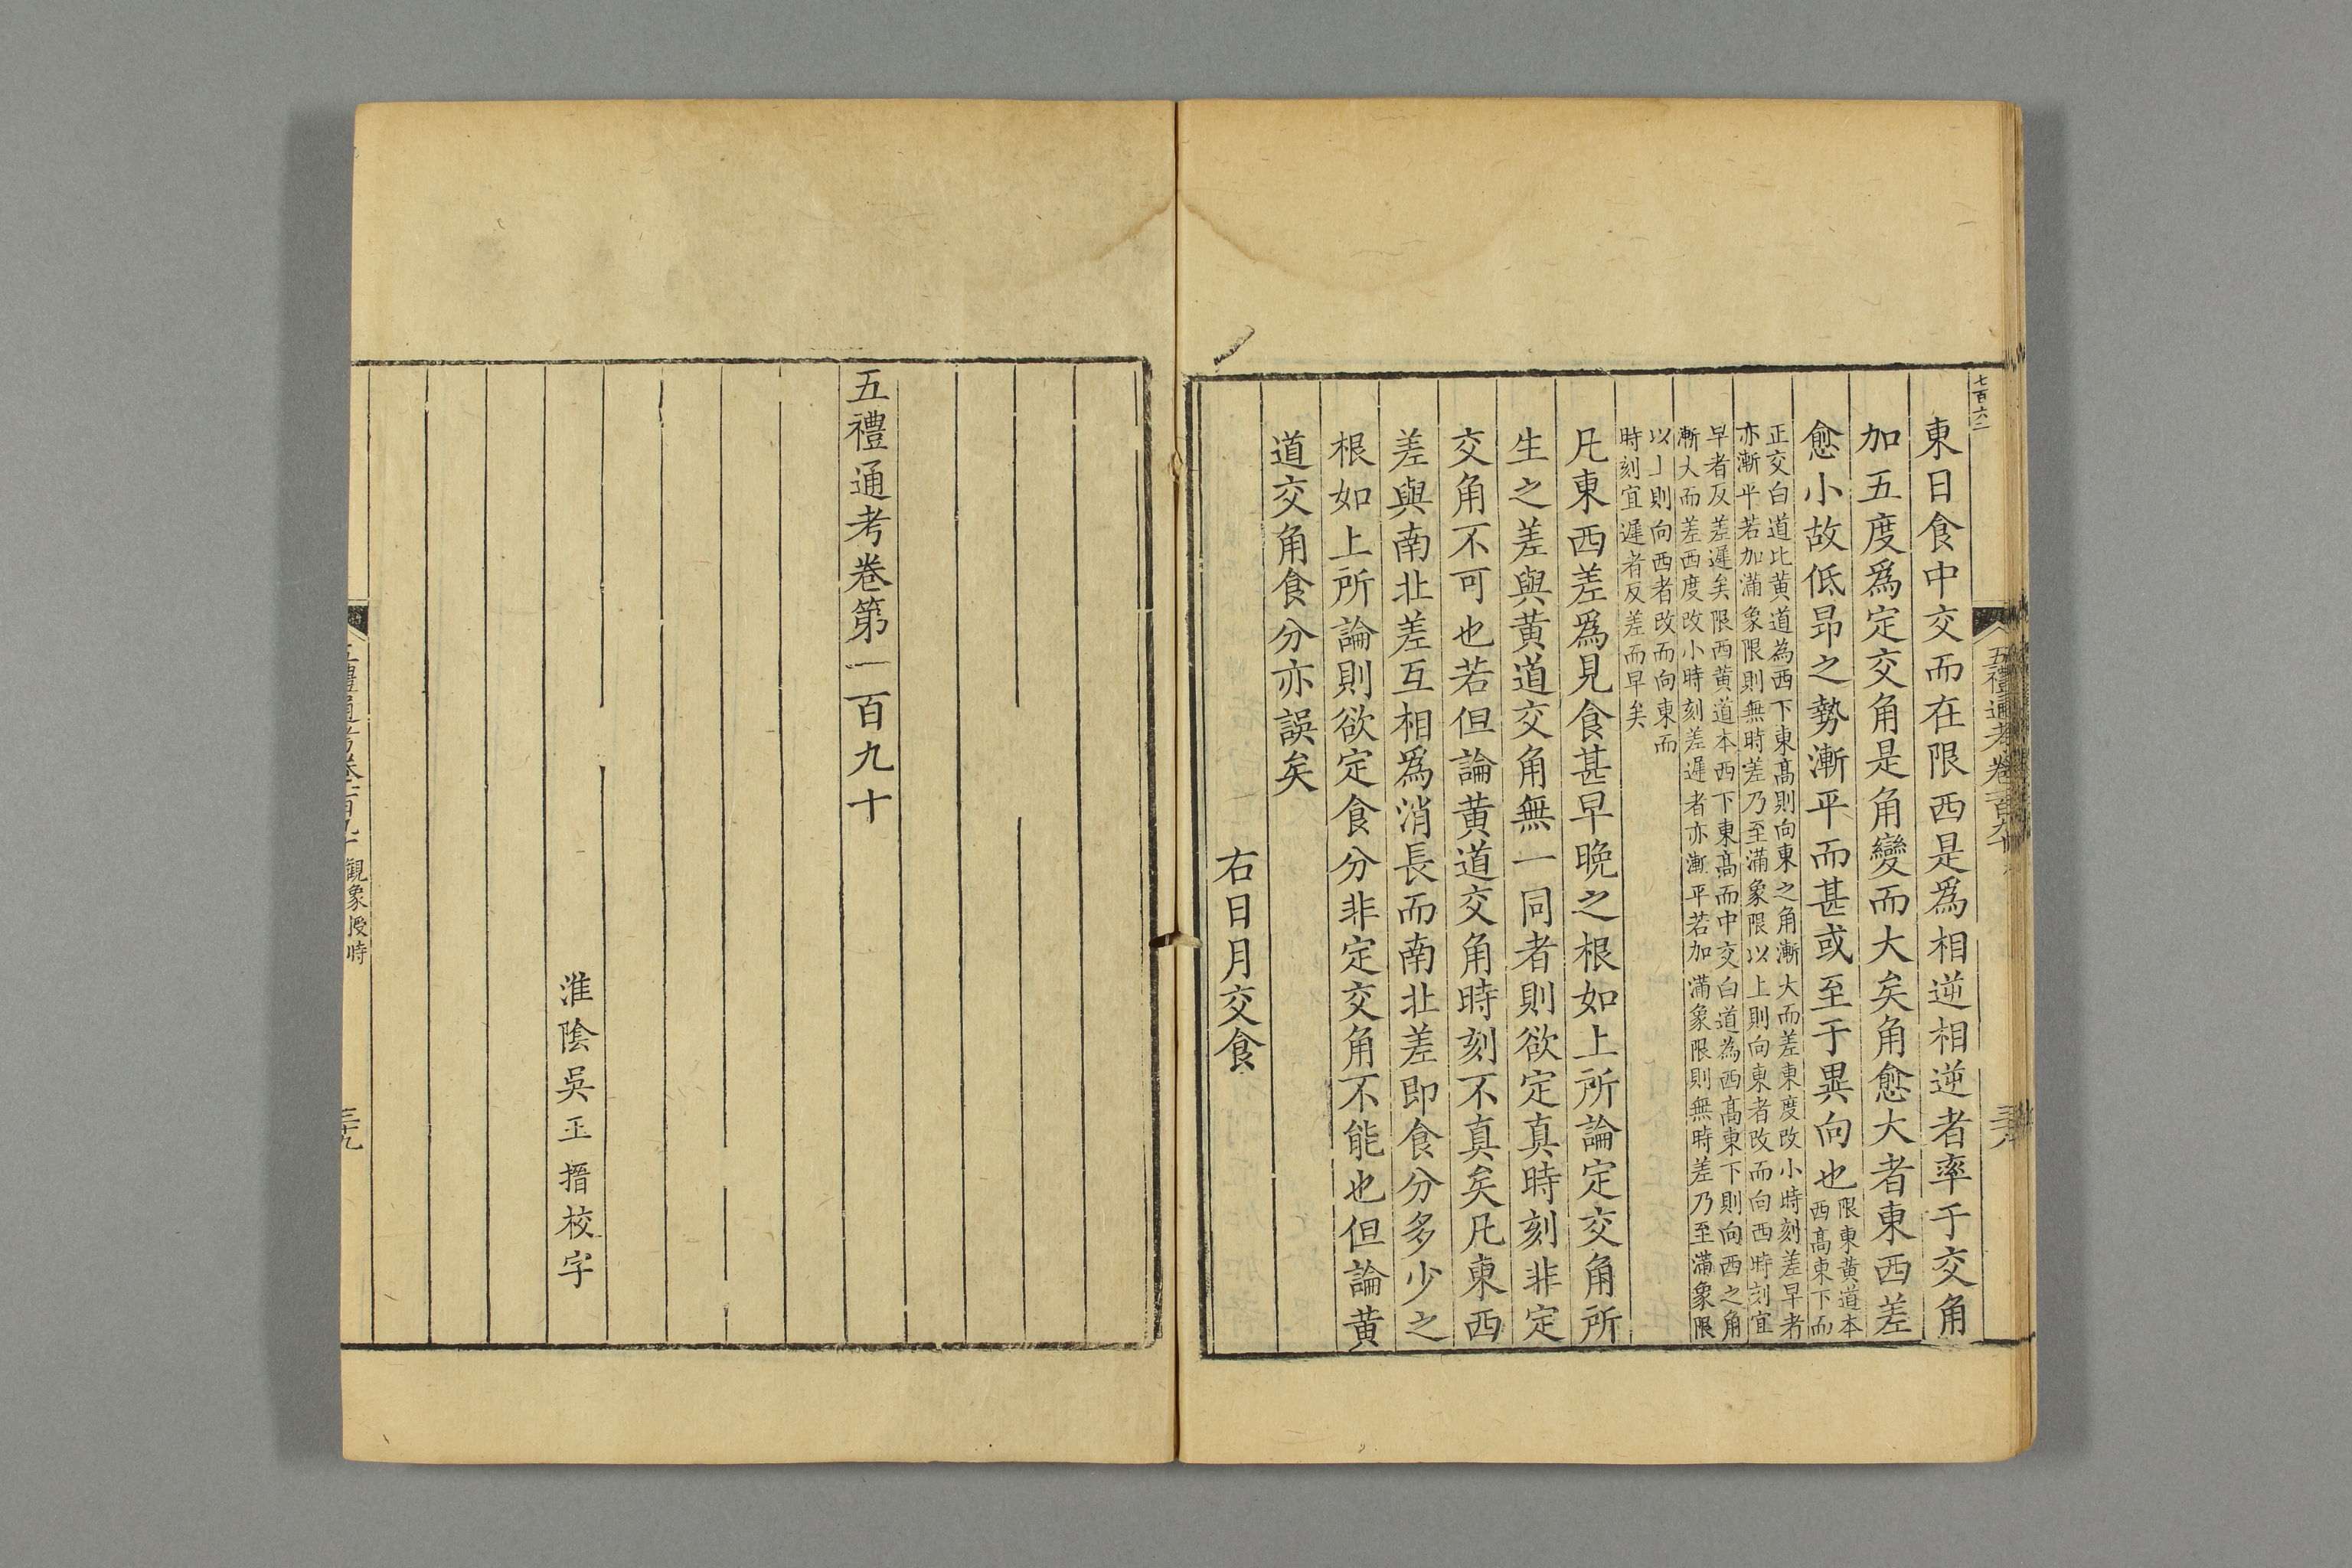 七百六二
五禮通考卷一百九十
三十八
東日食中交而在限西是爲相逆相逆者率于交角
加五度爲定交角是角變而大矣角愈大者東西差
愈小故低昂之勢漸平而甚或至于異向也限東黄道本
西高東下而
正交白道比黄道為西下東高則向東之角漸大而差東度改小時刻差早者
亦漸平若加滿象限則無時差乃至滿象限以上則向東者改而向西時刻宜
早者反差遲矣限西黄道本西下東高而中交白道為西高東下則向西之角
漸大而差西度改小時刻差遲者亦漸平若加滿象限則無時差乃至滿象限
以上則向西者改而向東而
時刻宜遲者反差而早矣
凡東西差爲見食甚早晚之根如上所論定交角所
生之差與黄道交角無一同者則欲定真時刻非定
交角不可也若但論黄道交角時刻不真矣凡東西
差與南北差互相爲消長而南北差即食分多少之
根如上所論則欲定食分非定交角不能也但論黄
道交角食分亦誤矣
右日月交食
五禮通考卷第一百九十
淮陰吳玉搢校字
五禮通考卷一百九十
觀象授時
三十九